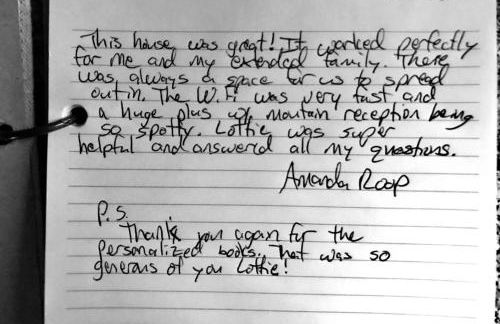 This house was great! It worked perfectly
for me and my extended family. There
was always a space for us to spread
out in. The Wifi was very fast and
a huge plus w/ moutain reception being
so spotty. Lottie was super
helpful and answered all my questions.
Amanda Roop
P.S.
Thank you again for the
personalized books. That was so
generous of you Lottie!